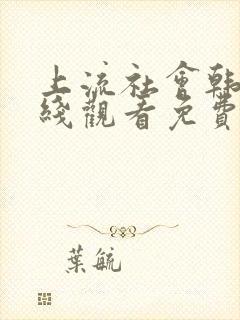 上流社會韩
綫觀看免費
葉毓